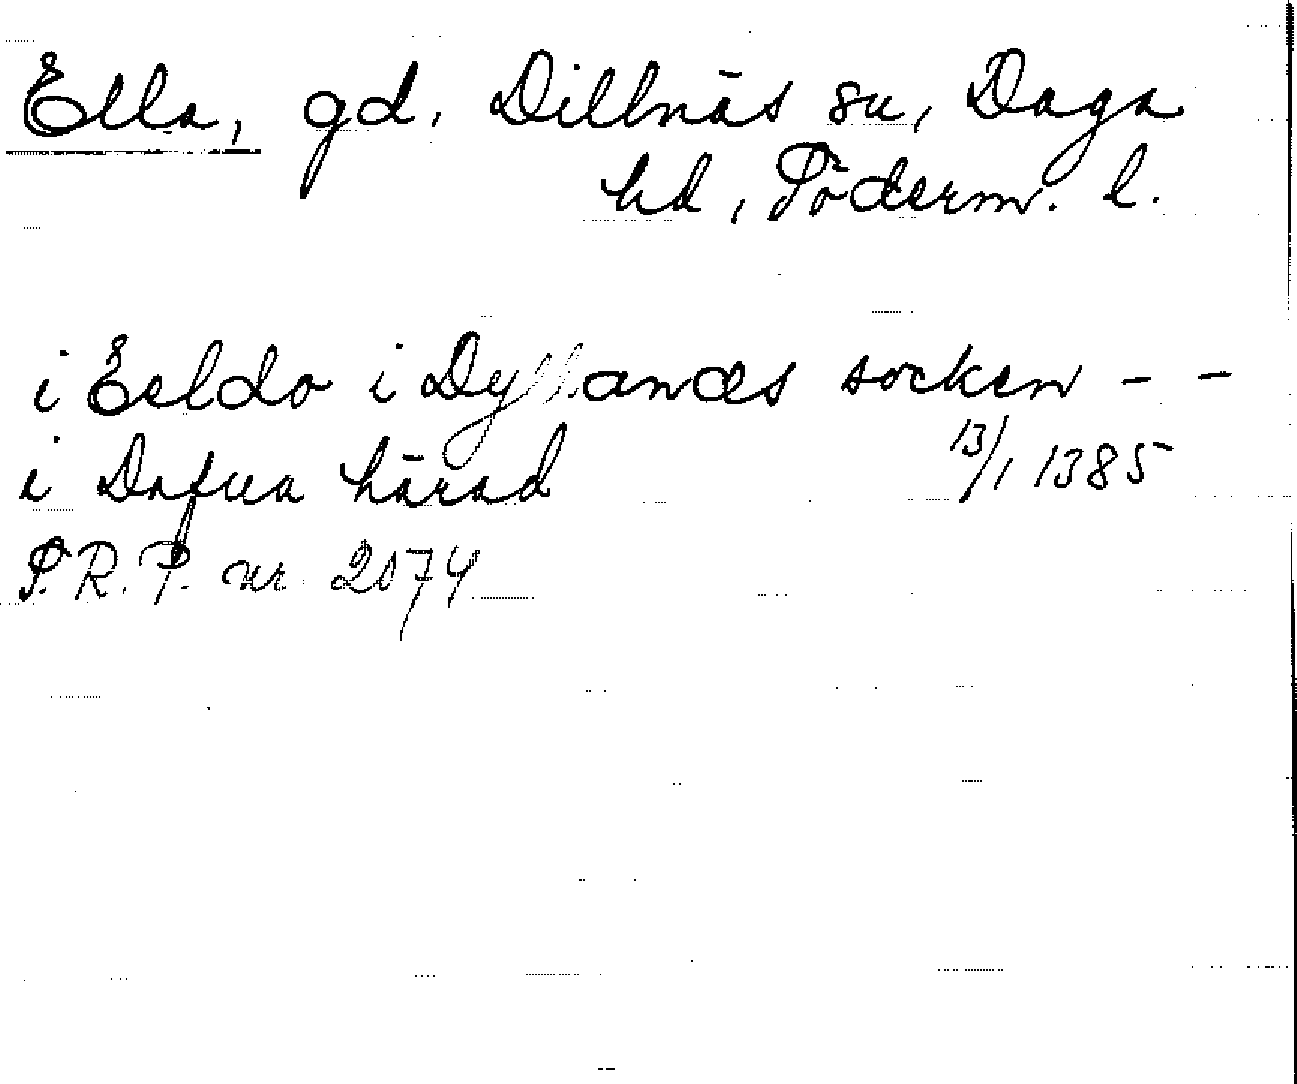 Ella, gd, Dillnäs sn, Daga
hd, Söderm. l.
i Eeldo i Dyllanæs socken - -
i Dafua härad 13/1 1385
S.R.P. nr 2074